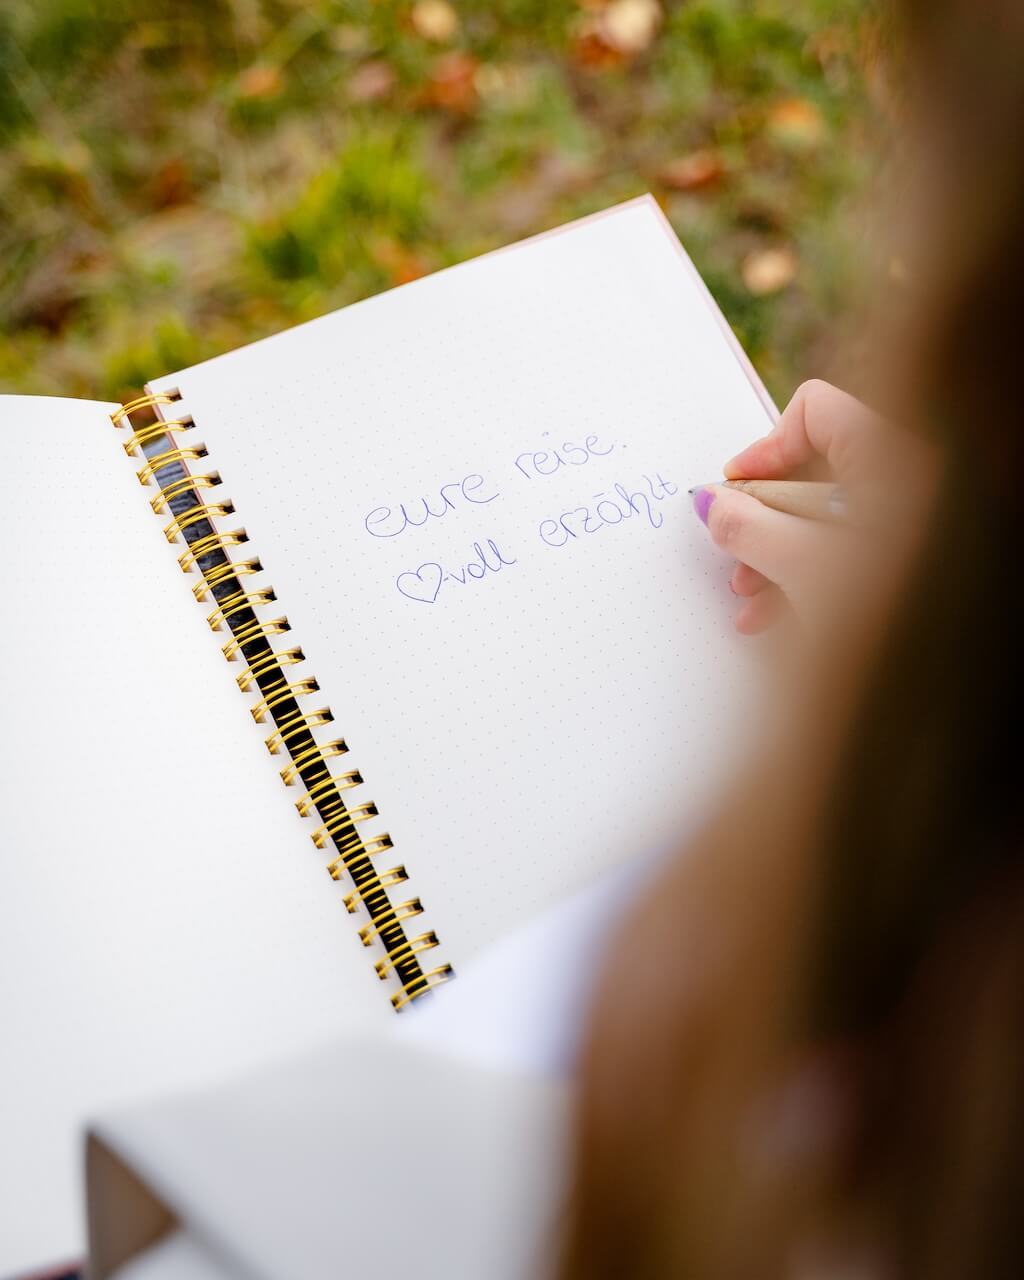 eure reise.
♡-voll erzählt